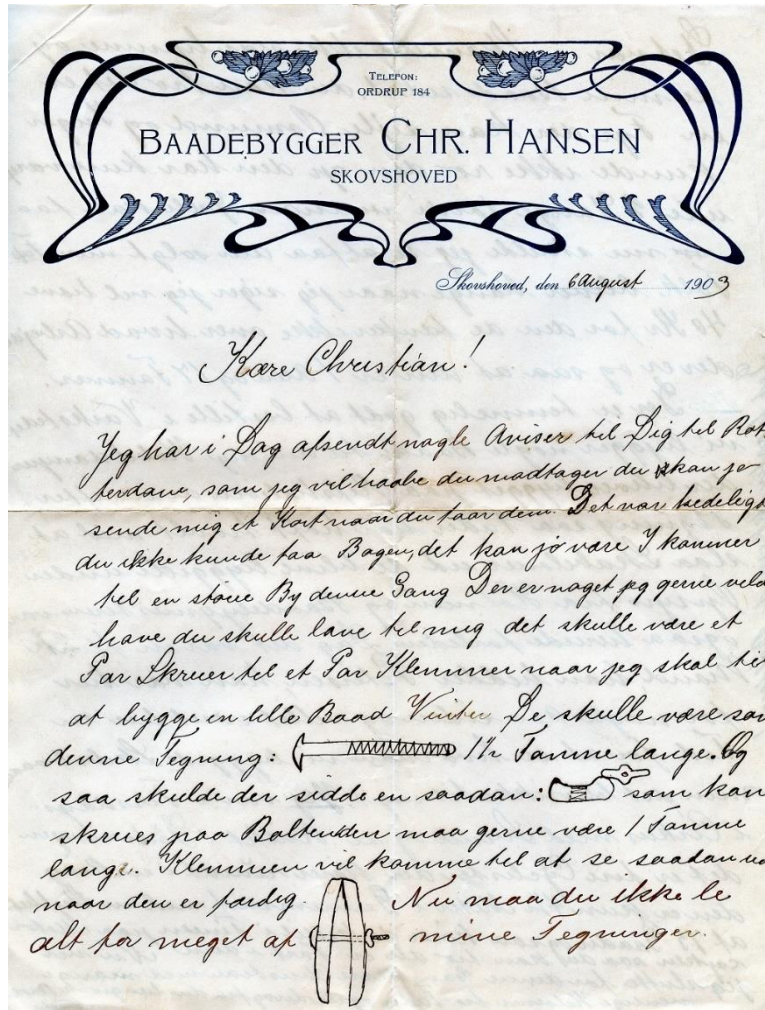 TELEFON:
ORDRUP 184
BAADEBYGGER CHR. HANSEN
SKOVSHOVED
Skovshoved, den 6 August 1903
Kære Christian!
Jeg har i Dag afsendt nogle Aviser til Dig til Rot-
terdam, som jeg vil haabe du modtager du kan jo
sende mig et Kort naar du faar dem. Det var kedeligt
du ikke kunde faa Bogen, det kan jo være I kommer
til en større By denne Gang Der er noget jeg gerne vilde
have du skulle lave til mig det skulle være et
Par Skruer til et Par Klemmer naar jeg skal til
at bygge en lille Baad Vinter De skulle være som
denne Tegning: 1½ Tomme lange. Og
saa skulde der sidde en saadan: som kan
skrues paa Boltenden maa gerne være 1 Tomme
lange. Klemmen vil komme til at se saadan ud
naar den er færdig. Nu maa du ikke le
alt for meget af mine Tegninger.